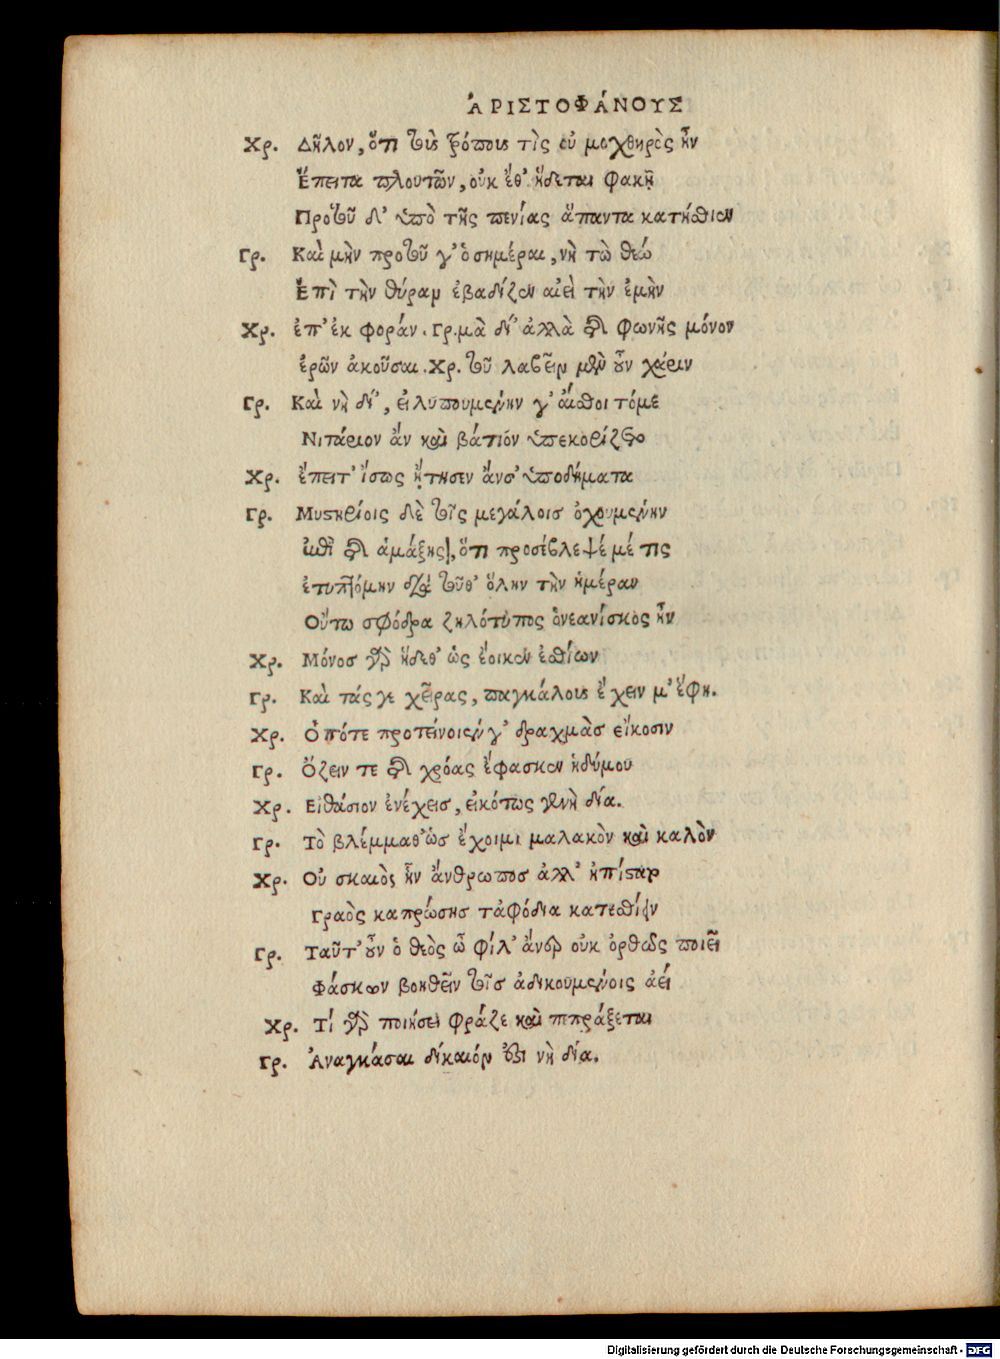 ἈΡΙΣΤΟΦΆΝΟΥΣ
Χρ. Δῆλον, ὅτι τοὺς τρόπους τὶς οὐ μοχθηρὸς ἦν
Ἔπειτα πλουτῶν, οὐκ ἔθ' ἥδεται φακῇ
Προτοῦ δ' ὑπὸ τῆς πενίας ἅπαντα κατήσθιεν
Γρ. Καὶ μὴν προτοῦ γ' ὁσημέραι, νὴ τὼ θεώ
Ἐπὶ τὴν θύραν ἐβαδίζεν αἰεὶ τὴν ἐμὴν
Χρ. ἐπ' ἐκ φοράν. Γρ. μὰ δί' ἀλλὰ τῆς φωνῆς μόνον
ἐρῶν ἀκοῦσαι. Χρ. τοῦ λαβεῖν μὲν οὖν χάριν
Γρ. Καὶ νὴ δί', εἰ λυπουμένην γ' αἴσθοιτό με
Νιτάριον ἂν καὶ βάτιον ὑπεκορίζετο
Χρ. ἔπειτ' ἴσως ᾔτησεν ἄνς' ὑποδήματα
Γρ. Μυστηρίοις δὲ τοῖς μεγάλοισ ὀχουμένην
ἐπὶ τῆς ἁμάξης, ὅτι προσέβλεψέ μέ τις
ἐτυπτόμην διὰ τοῦθ' ὅλην τὴν ἡμέραν
Οὕτω σφόδρα ζηλότυπος ὁ νεανίσκος ἦν
Χρ. Μόνοσ γὰρ ἥδεθ' ὡς ἔοικεν ἐσθίων
Γρ. Καὶ τάς γε χεῖρας, παγκάλους ἔχειν μ' ἔφη.
Χρ. Ὁπότε προτείνοιέν γ' δραχμὰσ εἴκοσιν
Γρ. Ὄζειν τε τῆς χρόας ἔφασκεν ἡδύμου
Χρ. Εἰ θάσιον ἐνέχεισ, εἰκότως γε νὴ δία.
Γρ. Τὸ βλέμμαθ' ὡσ ἔχοιμι μαλακὸν καὶ καλὸν
Χρ. Οὐ σκαιὸς ἦν ἄνθρωποσ ἀλλ' ἠπίστατο
Γραὸς καπρώσησ τἀφόδια κατεσθίειν
Γρ. Ταῦτ' οὖν ὁ θεὸς ὦ φίλ' ἄνερ οὐκ ὀρθῶς ποιεῖ
Φάσκων βοηθεῖν τοῖσ ἀδικουμένοις ἀεί
Χρ. Τί γὰρ ποιήσει φράζε καὶ πεπράξεται
Γρ. Ἀναγκάσαι δίκαιόν ἐστι νὴ δία.
Digitalisierung gefördert durch die Deutsche Forschungsgemeinschaft - DFG